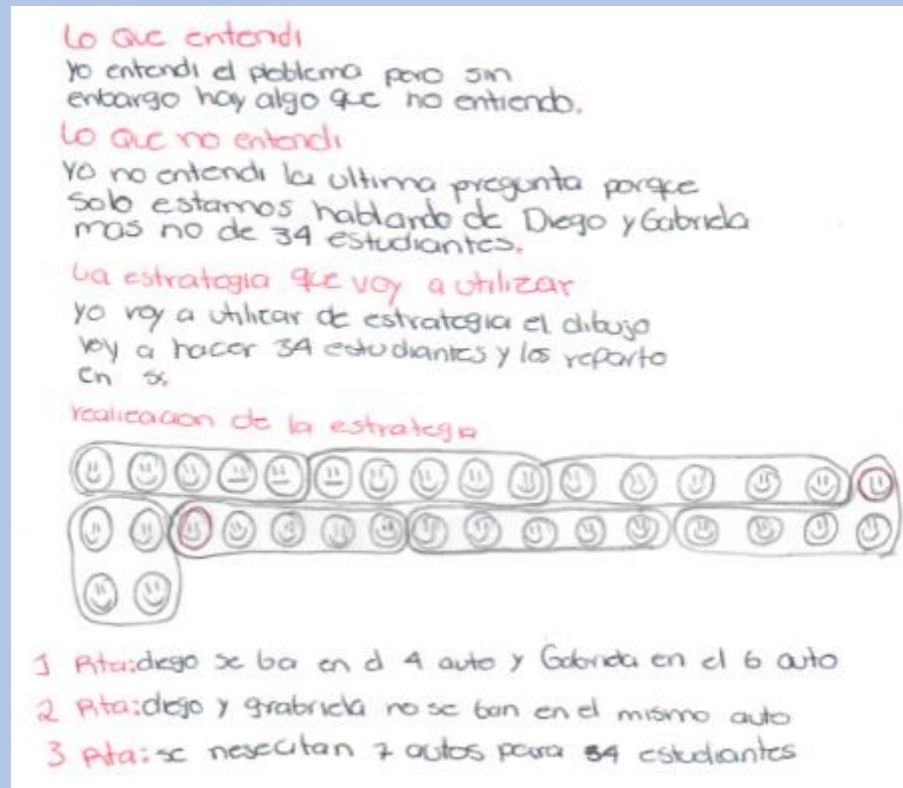 Lo que entendi
yo entendi el ploblema pero sin
enbargo hay algo que no entiendo.
Lo que no entendi
yo no entendi la ultima pregunta porqce
solo estamos hablando de Diego y Gabriela
mas no de 34 estudiantes.
La estrategia que voy a utilizar
yo voy a utilizar de estrategia el dibujo
voy a hacer 34 estudiantes y los reparto
en
realizacion de la estrategia
1 Rta: diego se ba en el 4 auto y Gabriela en el 6 auto
2 Rta: diego y grabriela no se ban en el mismo auto
3 Rta: se nesecitan 7 autos para 34 estudiantes